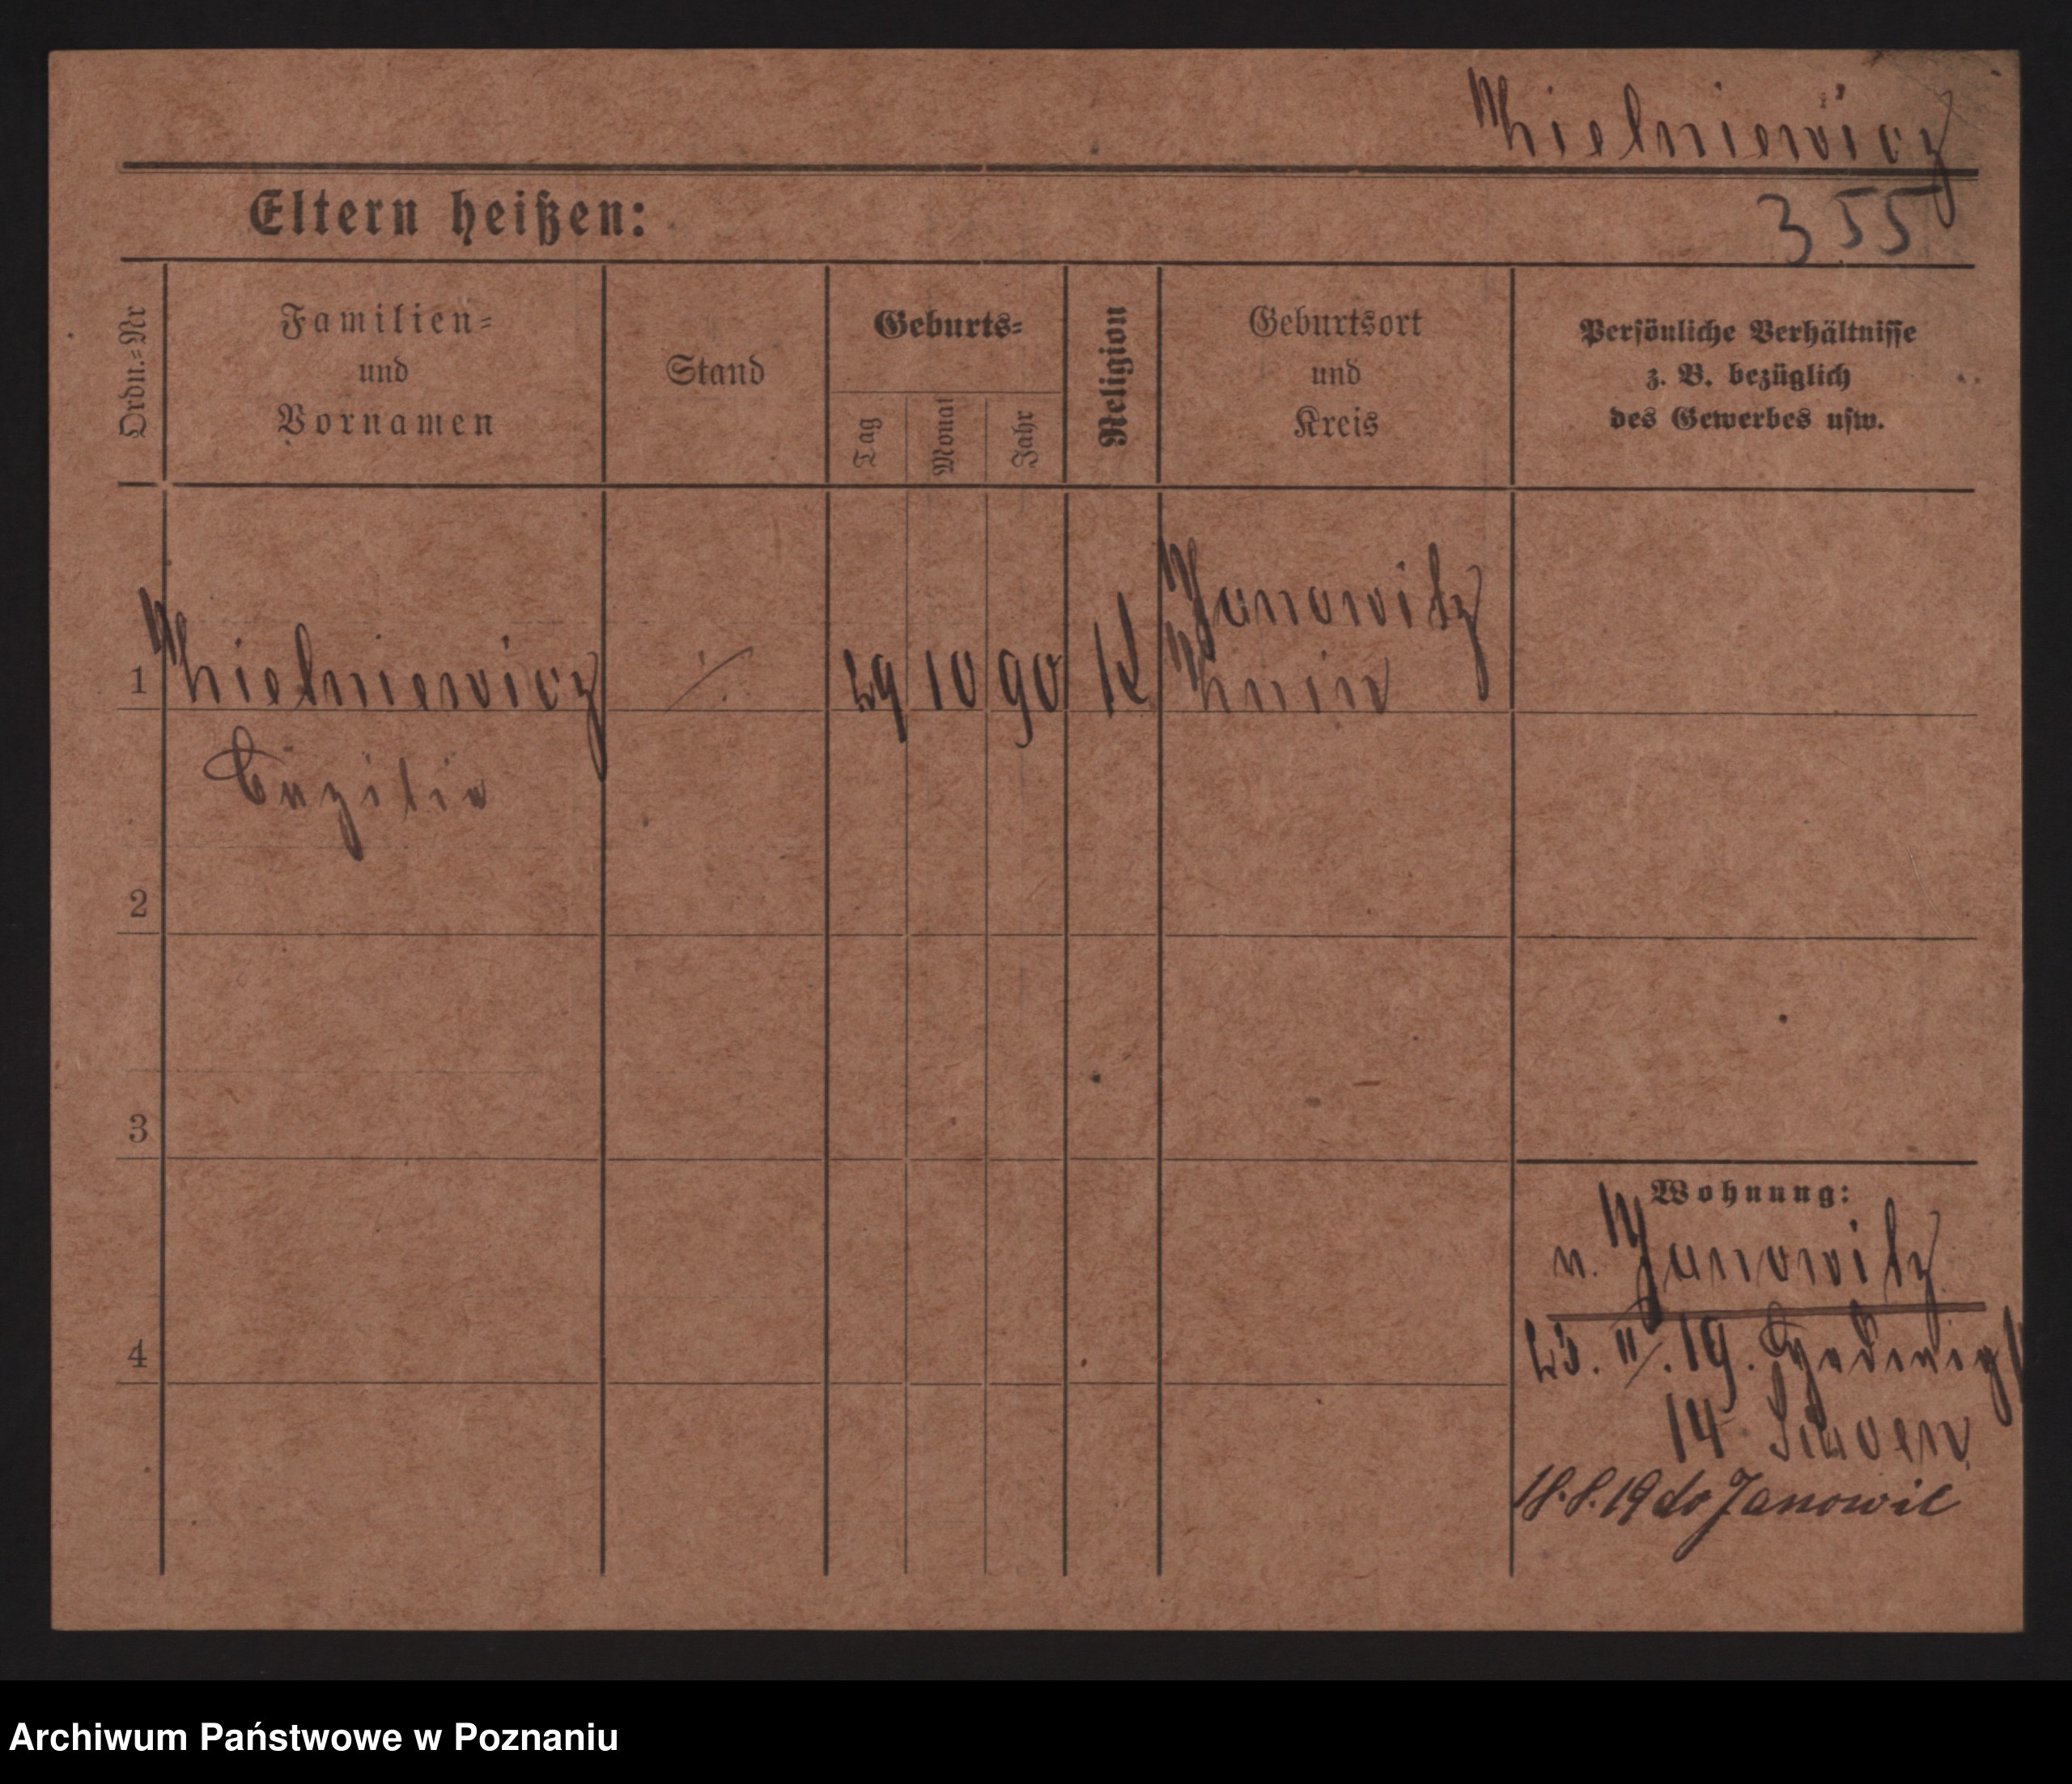 Zielniewicz
Eltern heißen:
355
Ordn.=Nr
Familien=
und
Vornamen
Stand
Geburts=
Tag
Monat
Jahr
Religion
Geburtsort
und
Kreis
Persönliche Verhältnisse
z. B. bezüglich
des Gewerbes usw.
1
Zielniewicz
29 10 90 K
Janowitz
Znin
2
3
4
Wohnung:
v. Janowitz
14
18.8.19 do Janowic
Archiwum Państwowe w Poznaniu